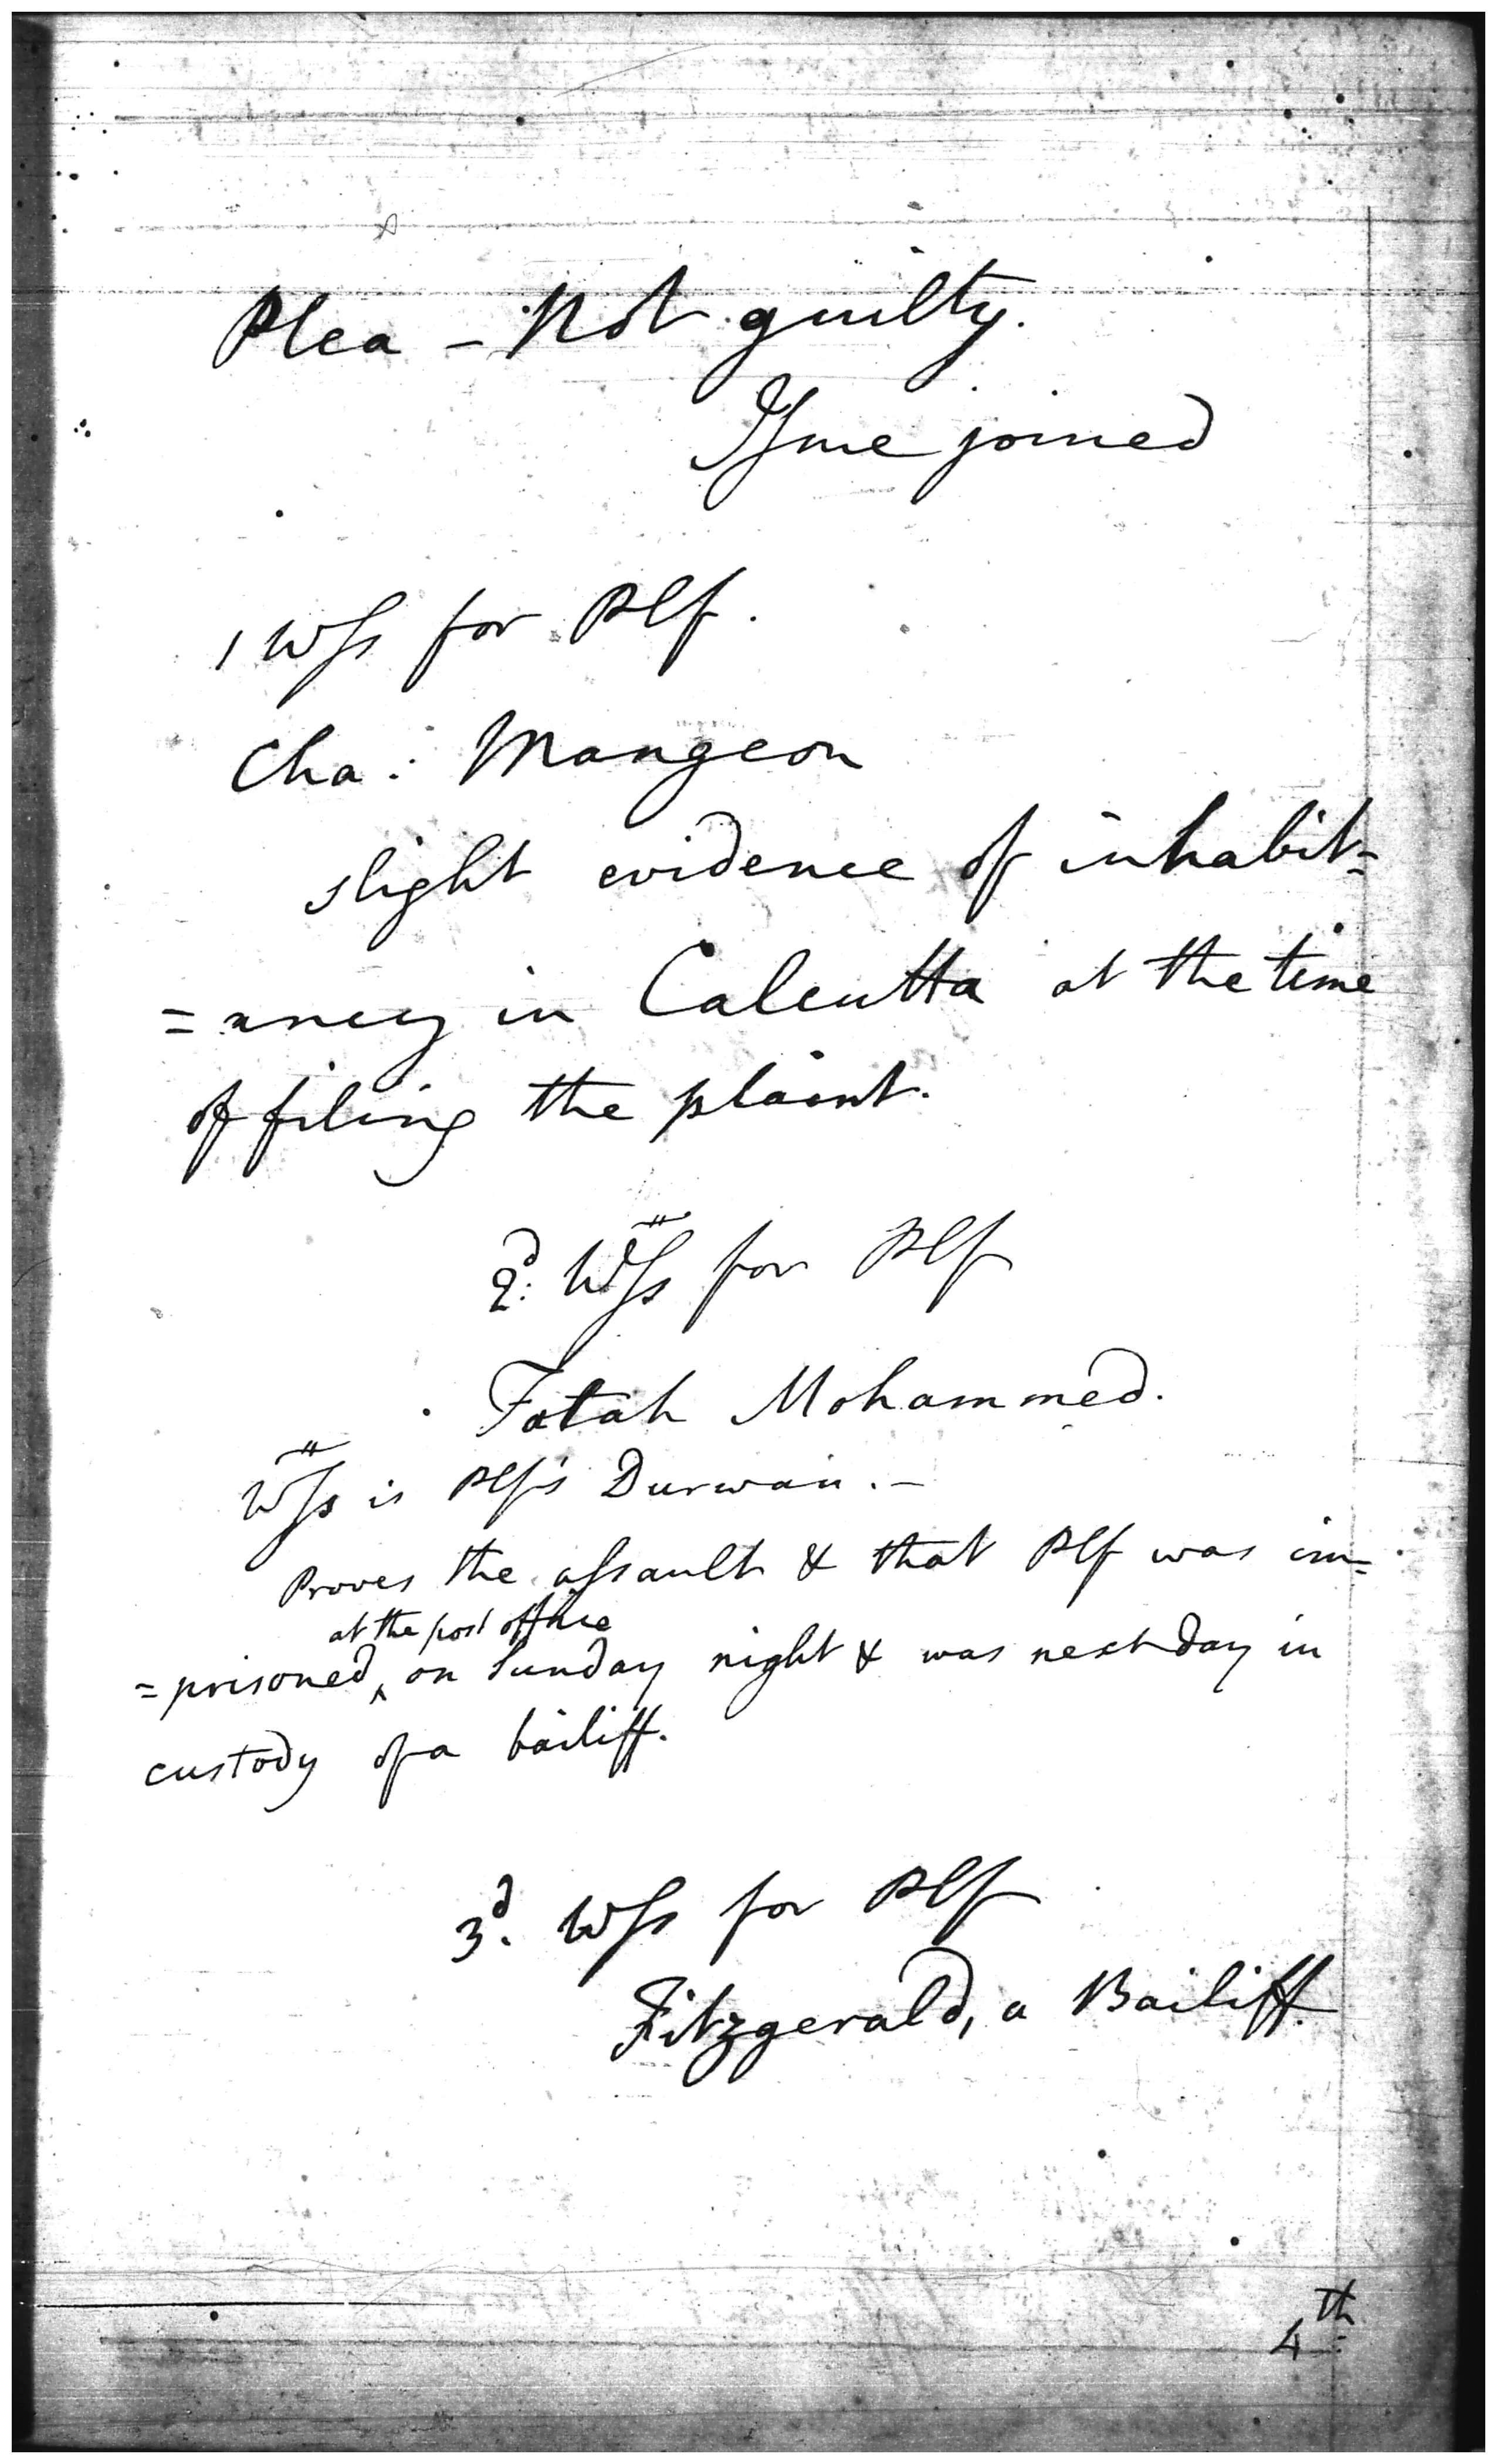 Plea - Not guilty.
Issue joined
1 Wss for Plf.
Cha: Mangeon
slight evidence of inhabit=
=ancy in Calcutta at the time
of filing the plaint.
2d: Wss for Plf
Fatah Mohammed.
Wss is Plf's Durwan. -
Proves the assault & that Plf was im=
at the post office
=prisoned ‸ on Sunday night & was next day in
custody of a bailiff.
3d. Wss for Plf
Fitzgerald, a Bailiff.
4th: